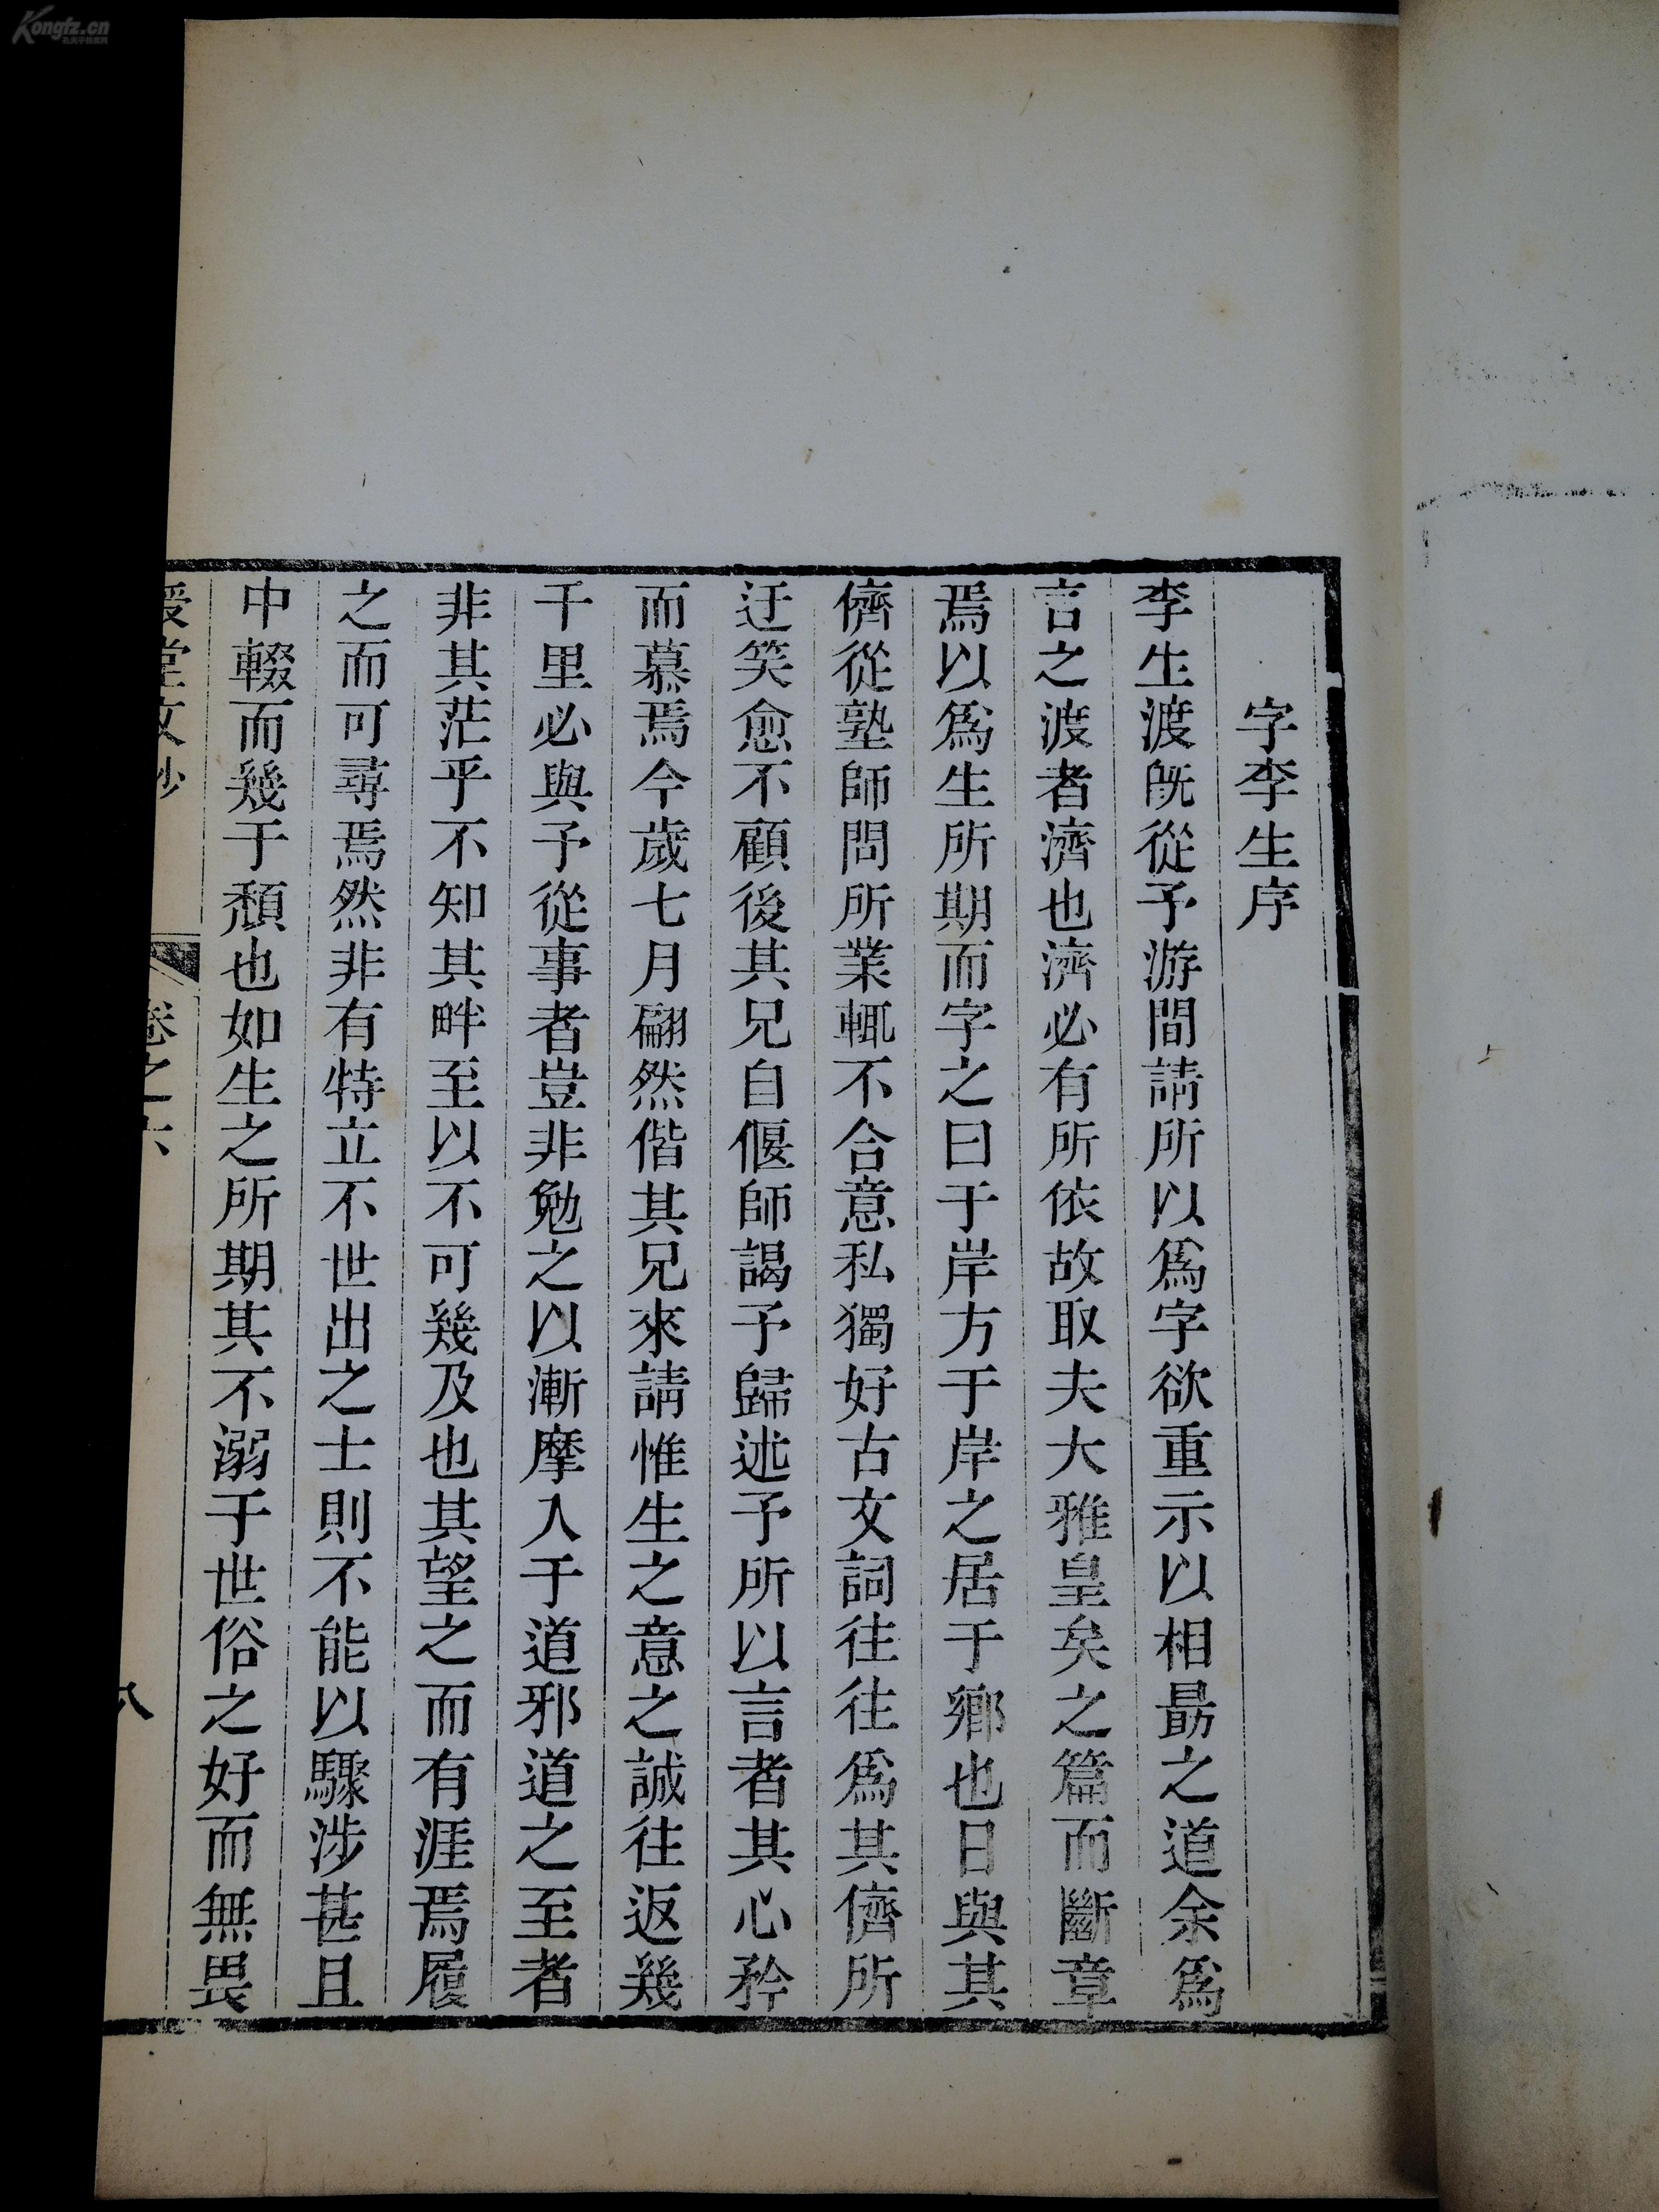 字李生序
李生渡旣從予游間請所以爲字欲重示以相勗之道余爲
言之渡者濟也濟必有所依故取夫大雅皇矣之篇而斷章
焉以爲生所期而字之曰于岸方于岸之居于鄉也日與其
儕從塾師問所業輒不合意私獨好古文詞往往爲其儕所
迂笑愈不顧後其兄自偃師謁予歸述予所以言者其心矜
而慕焉今歲七月翩然偕其兄來請惟生之意之誠往返幾
千里必與予從事者豈非勉之以漸摩入于道邪道之至者
非其茫乎不知其畔至以不可幾及也其望之而有涯焉履
之而可尋焉然非有特立不世出之士則不能以驟涉甚且
中輟而幾于頹也如生之所期其不溺于世俗之好而無畏
堂文鈔 卷之六 八
Kongfz.cn